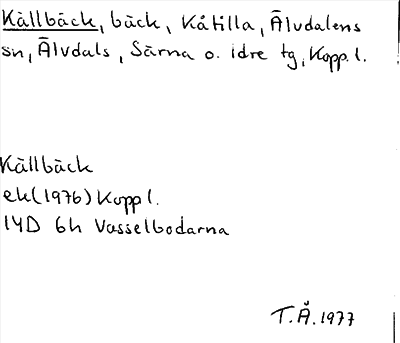 Källbäck, bäck, Kåtilla, Älvdalens
sn, Älvdals, Särna o. idre tg, Kopp. l.
Källbäck
ek (1976) Kopp l.
14D 6h Vasselbodarna
T.Å. 1977